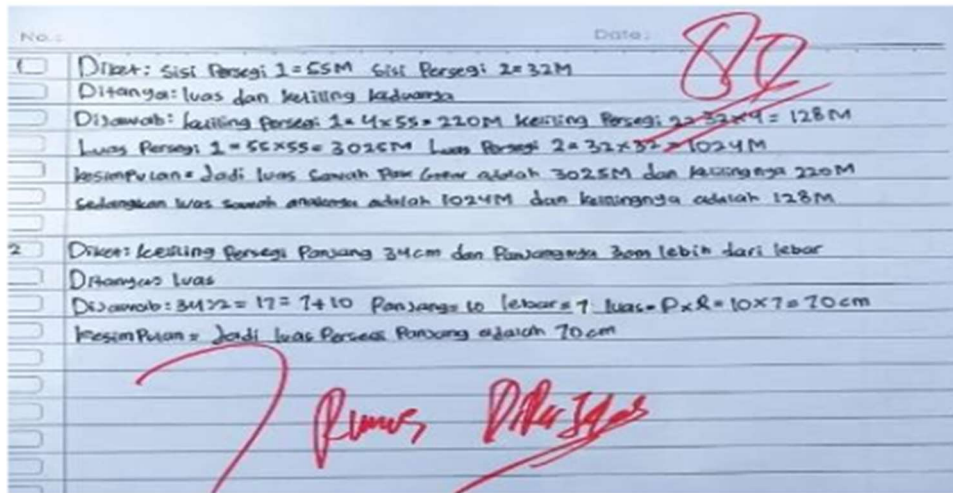 No.: Date:
80
1 Diket: Sisi Persegi 1=55M Sisi Persegi 2=32M
Ditanya: luas dan keliling keduanya
Dijawab: keliling Persegi 1=4x55=220M keliling Persegi 2=32x4=128M
Luas Persegi 1=55x55=3025M Luas Persegi 2=32x32=1024M
kesimpulan= Jadi luas Sawah Pak adalah 3025M dan kelilingnya 220M
Sedangkan luas sawah anaknya adalah 1024M dan kelilingnya adalah 128M
2 Diket: keliling Persegi Panjang 34cm dan Panjangnya 3cm lebih dari lebar
Ditanya= luas
Dijawab: 34:2=17=7+10 Panjang=10 lebar=7 luas=Pxl=10x7=70cm
kesimpulan= Jadi luas Persegi Panjang adalah 70cm
Rumus Diperjelas